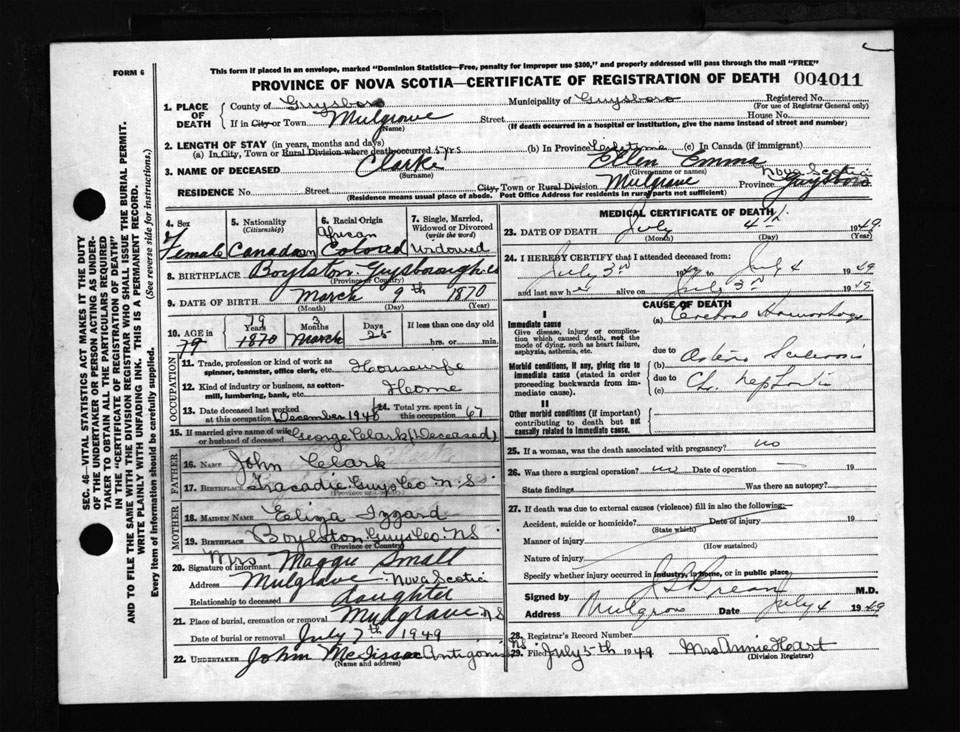 This form if placed in an envelope, marked "Dominion Statistics—Free, penalty for improper use $300," and properly addressed will pass through the mail "FREE"
FORM 6
PROVINCE OF NOVA SCOTIA—CERTIFICATE OF REGISTRATION OF DEATH 004011
SEC. 46—VITAL STATISTICS ACT MAKES IT THE DUTY
OF THE UNDERTAKER OR PERSON ACTING AS UNDER-
TAKER TO OBTAIN ALL THE PARTICULARS REQUIRED
IN THE "CERTIFICATE OF REGISTRATION OF DEATH"
AND TO FILE THE SAME WITH THE DIVISION REGISTRAR WHO SHALL ISSUE THE BURIAL PERMIT.
WRITE PLAINLY WITH UNFADING INK. THIS IS A PERMANENT RECORD.
Every item of Information should be carefully supplied. (See reverse side for instructions.)
1. PLACE OF DEATH
County of Guysboro Municipality of Guysboro Registered No.
(For use of Registrar General only)
If in City or Town Mulgrave Street House No.
(Name) (If death occurred in a hospital or institution, give the name instead of street and number)
2. LENGTH OF STAY (in years, months and days)
(a) In City, Town or Rural Division where death occurred 5 yrs (b) In Province Lifetime (c) In Canada (if immigrant)
3. NAME OF DECEASED Clarke Ellen Emma
(Surname) (Given name or names)
RESIDENCE No. Street City, Town or Rural Division Mulgrave Province Nova Scotia Guysboro
(Residence means usual place of abode. Post Office Address for residents in rural parts not sufficient)
4. Sex Female
5. Nationality (Citizenship) Canadian
6. Racial Origin African Colored
7. Single, Married, Widowed or Divorced (write the word) Widowed
8. BIRTHPLACE Boylston Guysborough Co
(Province or Country)
9. DATE OF BIRTH March 9th 1870
(Month) (Day) (Year)
10. AGE in 79
79 Years 1870
3 Months March
Days 25
If less than one day old
hrs. or min.
OCCUPATION
11. Trade, profession or kind of work as spinner, teamster, office clerk, etc. Housewife
12. Kind of industry or business, as cotton-mill, lumbering, bank, etc. Home
13. Date deceased last worked at this occupation December 1948
14. Total yrs. spent in this occupation 67
15. If married give name of wife or husband of deceased George Clark (Deceased)
FATHER
16. NAME John Clark
17. BIRTHPLACE Tracadie Guys Co. N.S
(Province or Country)
MOTHER
18. MAIDEN NAME Eliza Izzard
19. BIRTHPLACE Boylston Guys Co. NS
(Province or Country)
20. Signature of informant Mrs Maggie Small
Address Mulgrave Nova Scotia
Relationship to deceased daughter
21. Place of burial, cremation or removal Mulgrave NS
Date of burial or removal July 7th 1949
22. UNDERTAKER John McIssac Antigonish NS
(Name and address)
MEDICAL CERTIFICATE OF DEATH
23. DATE OF DEATH July 4th 1949
(Month) (Day) (Year)
24. I HEREBY CERTIFY that I attended deceased from:
July 3rd 1949 to July 4 1949
and last saw her alive on July 3rd 1949
CAUSE OF DEATH
I
Immediate cause
Give disease, injury or complication which caused death, not the mode of dying, such as heart failure, asphyxia, asthenia, etc.
(a) Cerebral Haemorrhage
due to
Morbid conditions, if any, giving rise to immediate cause (stated in order proceeding backwards from immediate cause).
(b) Arterio Sclerosis
due to
(c) Chr. Nephritis
II
Other morbid conditions (if important) contributing to death but not causally related to immediate cause.
25. If a woman, was the death associated with pregnancy? no
26. Was there a surgical operation? no Date of operation 19
State findings Was there an autopsy?
27. If death was due to external causes (violence) fill in also the following:
Accident, suicide or homicide? Date of injury 19
(State which)
Manner of injury
(How sustained)
Nature of injury
Specify whether injury occurred in industry, in home, or in public place
Signed by M.D.
Address Mulgrave Date July 4 1949
28. Registrar's Record Number
29. Filed July 5th 1949 Mrs Annie Hart
(Division Registrar)